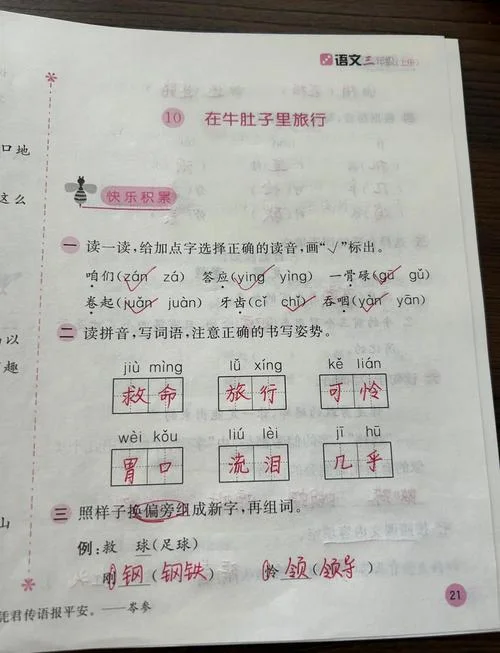 语文 三年级(上册)
10 在牛肚子里旅行
快乐积累
一 读一读,给加点字选择正确的读音,画“√”标出。
咱们(zán zá) 答应(yìng yìng) 一骨碌(gū gǔ)
卷起(juǎn juàn) 牙齿(cǐ chǐ) 吞咽(yàn yān)
二 读拼音,写词语,注意正确的书写姿势。
jiù mìng lǚ xíng kě lián
救命 旅行 可怜
wèi kǒu liú lèi jī hū
胃口 流泪 几乎
三 照样子换偏旁组成新字,再组词。
例:救 球(足球)
刚 钢(钢铁) 怜 领(领导)
21
口地
这么
以
趣
山
凭君传语报平安。——岑参